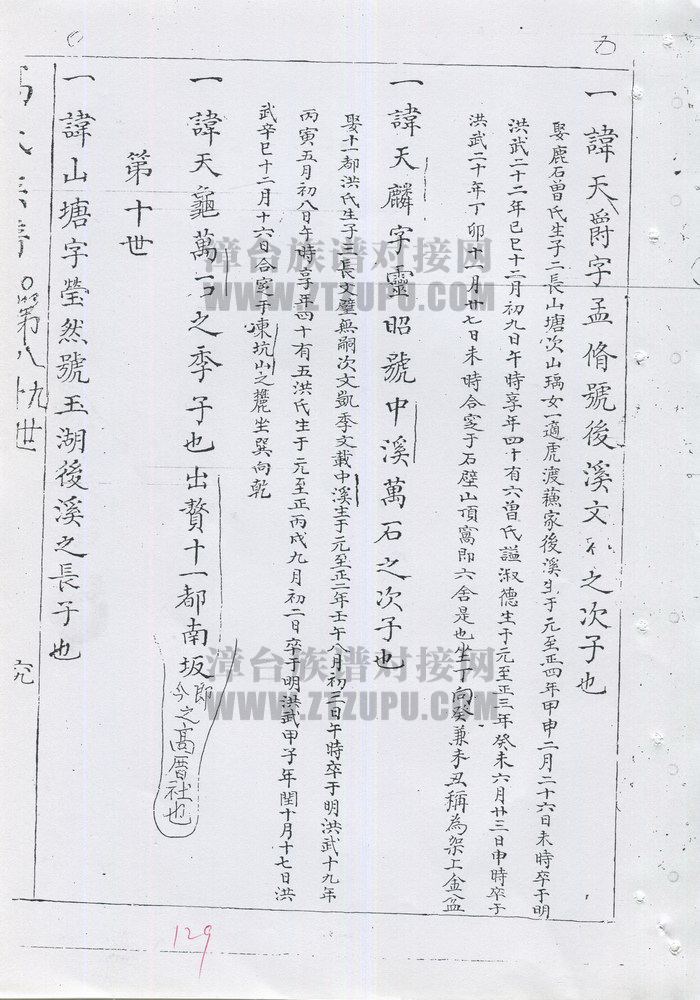 一諱天爵字孟脩號後溪文 之次子也
娶鹿石曾氏生子二長山塘次山瑀女一適虎渡蘓家後溪生于元至正四年甲申二月二十六日未時卒于明
洪武二十二年己巳十二月初九日午時享年四十有六曾氏謚淑德生于元至正三年癸未六月廿三日申時卒于
洪武二十年丁卯十一月廿七日未時合窆于石壁山頂窩即六舍是也坐丁向癸兼未丑稱為架上金盆
一諱天麟字靈昭號中溪萬石之次子也
娶十一都洪氏生子三長文璧無嗣次文凱季文載中溪生于元至正二年壬午八月初三日午時卒于明洪武十九年
丙寅五月初八日午時享年四十有五洪氏生于元至正丙戌九月初二日卒于明洪武甲子年閏十月十七日洪
武辛巳十二月十六日合窆于東坑山之麓坐巽向乾
一諱天龜萬石之季子也出贅十一都南坂即今之高厝社也
第十世
一諱山塘字瑩然號玉湖後溪之長子也
第八九世
究
129
漳台族谱对接网
WWW.ZTZUPU.COM
漳台族谱对接网
WWW.ZTZUPU.COM